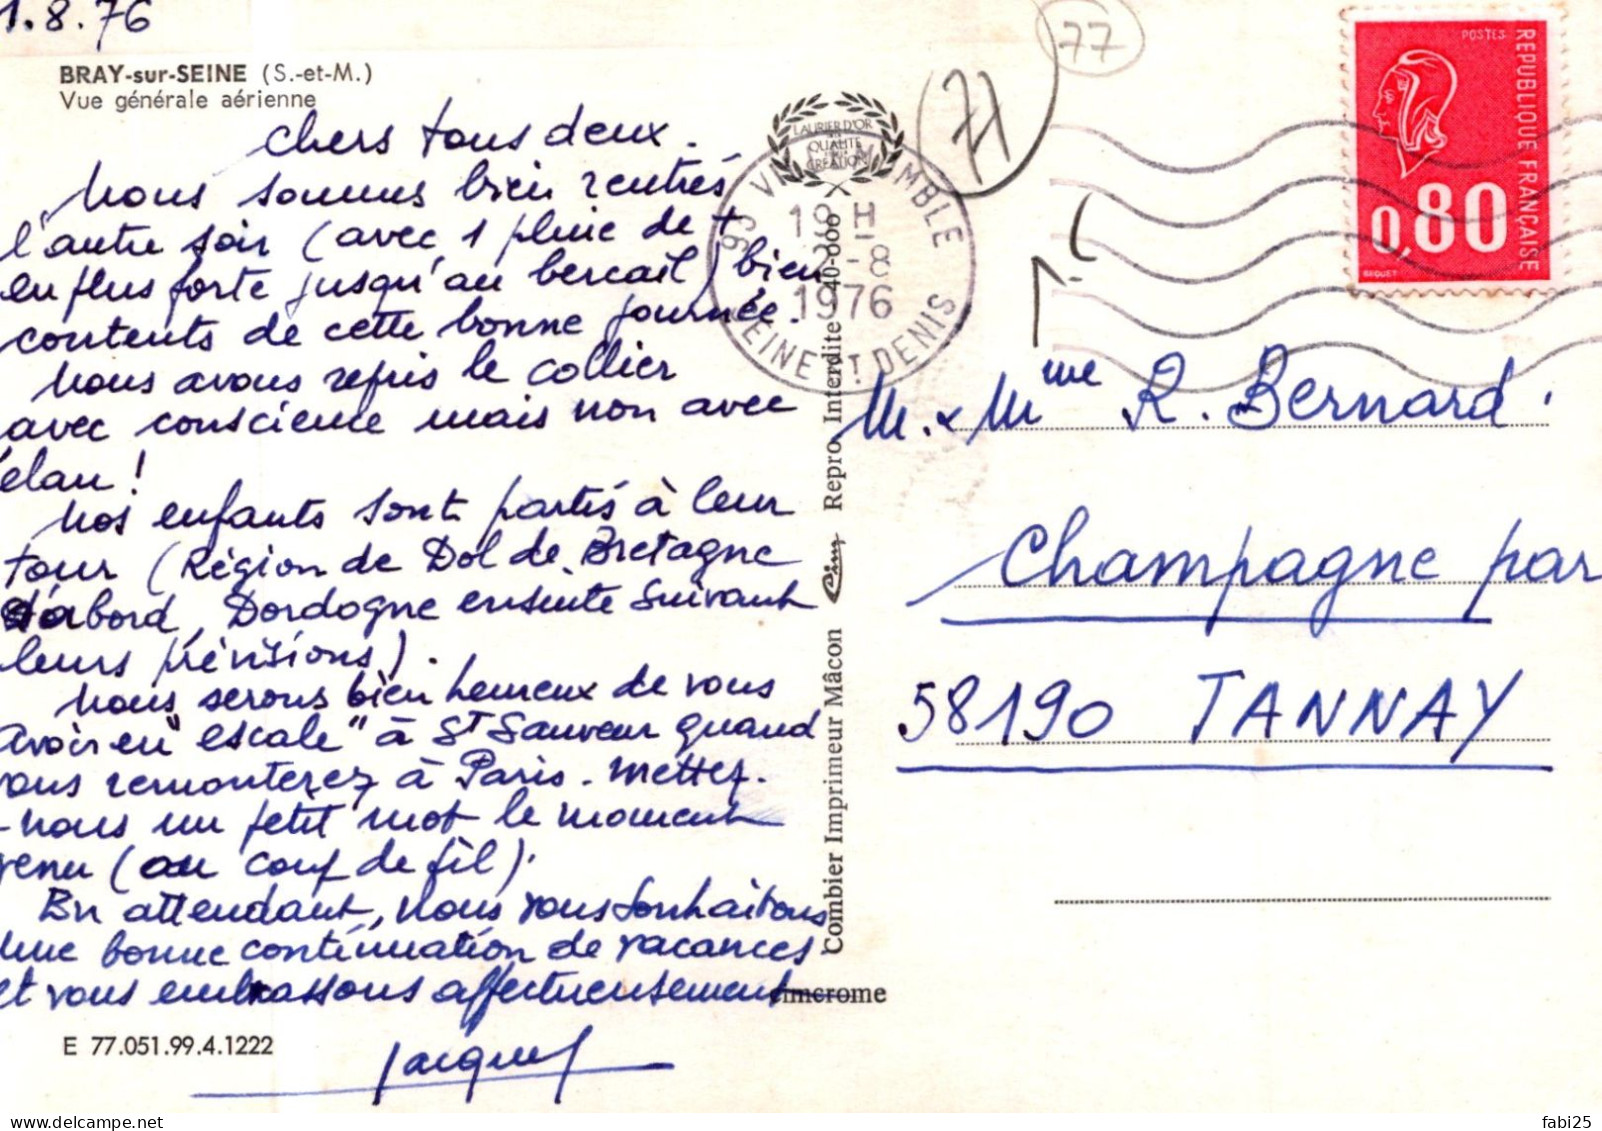 1.8.76
BRAY-sur-SEINE (S.-et-M.)
Vue générale aérienne
Chers tous deux.
Nous sommes bien rentrés
l'autre soir (avec 1 pluie de +
en plus forte jusqu'au bercail) bien
contents de cette bonne journée.
Nous avons repris le collier
avec conscience mais non avec
élan !
Nos enfants sont partis à leur
tour (Région de Dol de Bretagne
d'abord, Dordogne ensuite suivant
leurs prévisions).
Nous serons bien heureux de vous
avoir en "escale" à St Sauveur quand
vous remonterez à Paris. Mettez-
-nous un petit mot le moment
venu (ou coup de fil).
En attendant, nous vous souhaitons
une bonne continuation de vacances
et vous embrassons affectueusement
Jacques
E 77.051.99.4.1222
LAURIER D'OR
QUALITÉ
CRÉATION
93 VILLEMOMBLE
19 H
2-8
1976
SEINE ST DENIS
Combier Imprimeur Mâcon Cim Repro. Interdite 40-000
cimcrome
77
77
POSTES
REPUBLIQUE FRANÇAISE
0,80
BEQUET
M. & Mme R. Bernard
Champagne par
58190 TANNAY
fabi25